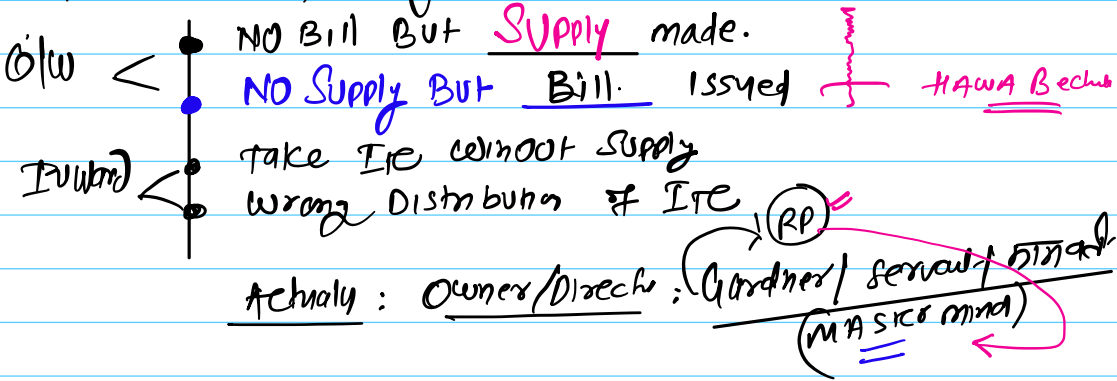 O/W
NO Bill But Supply made.
NO Supply But Bill. Issued HAWA Bech
Inward
Take ITC without Supply
Wrong Distribution of ITC
RP
Actualy : Owner/Directo : Gardner/ servant/
(MASTER mind)